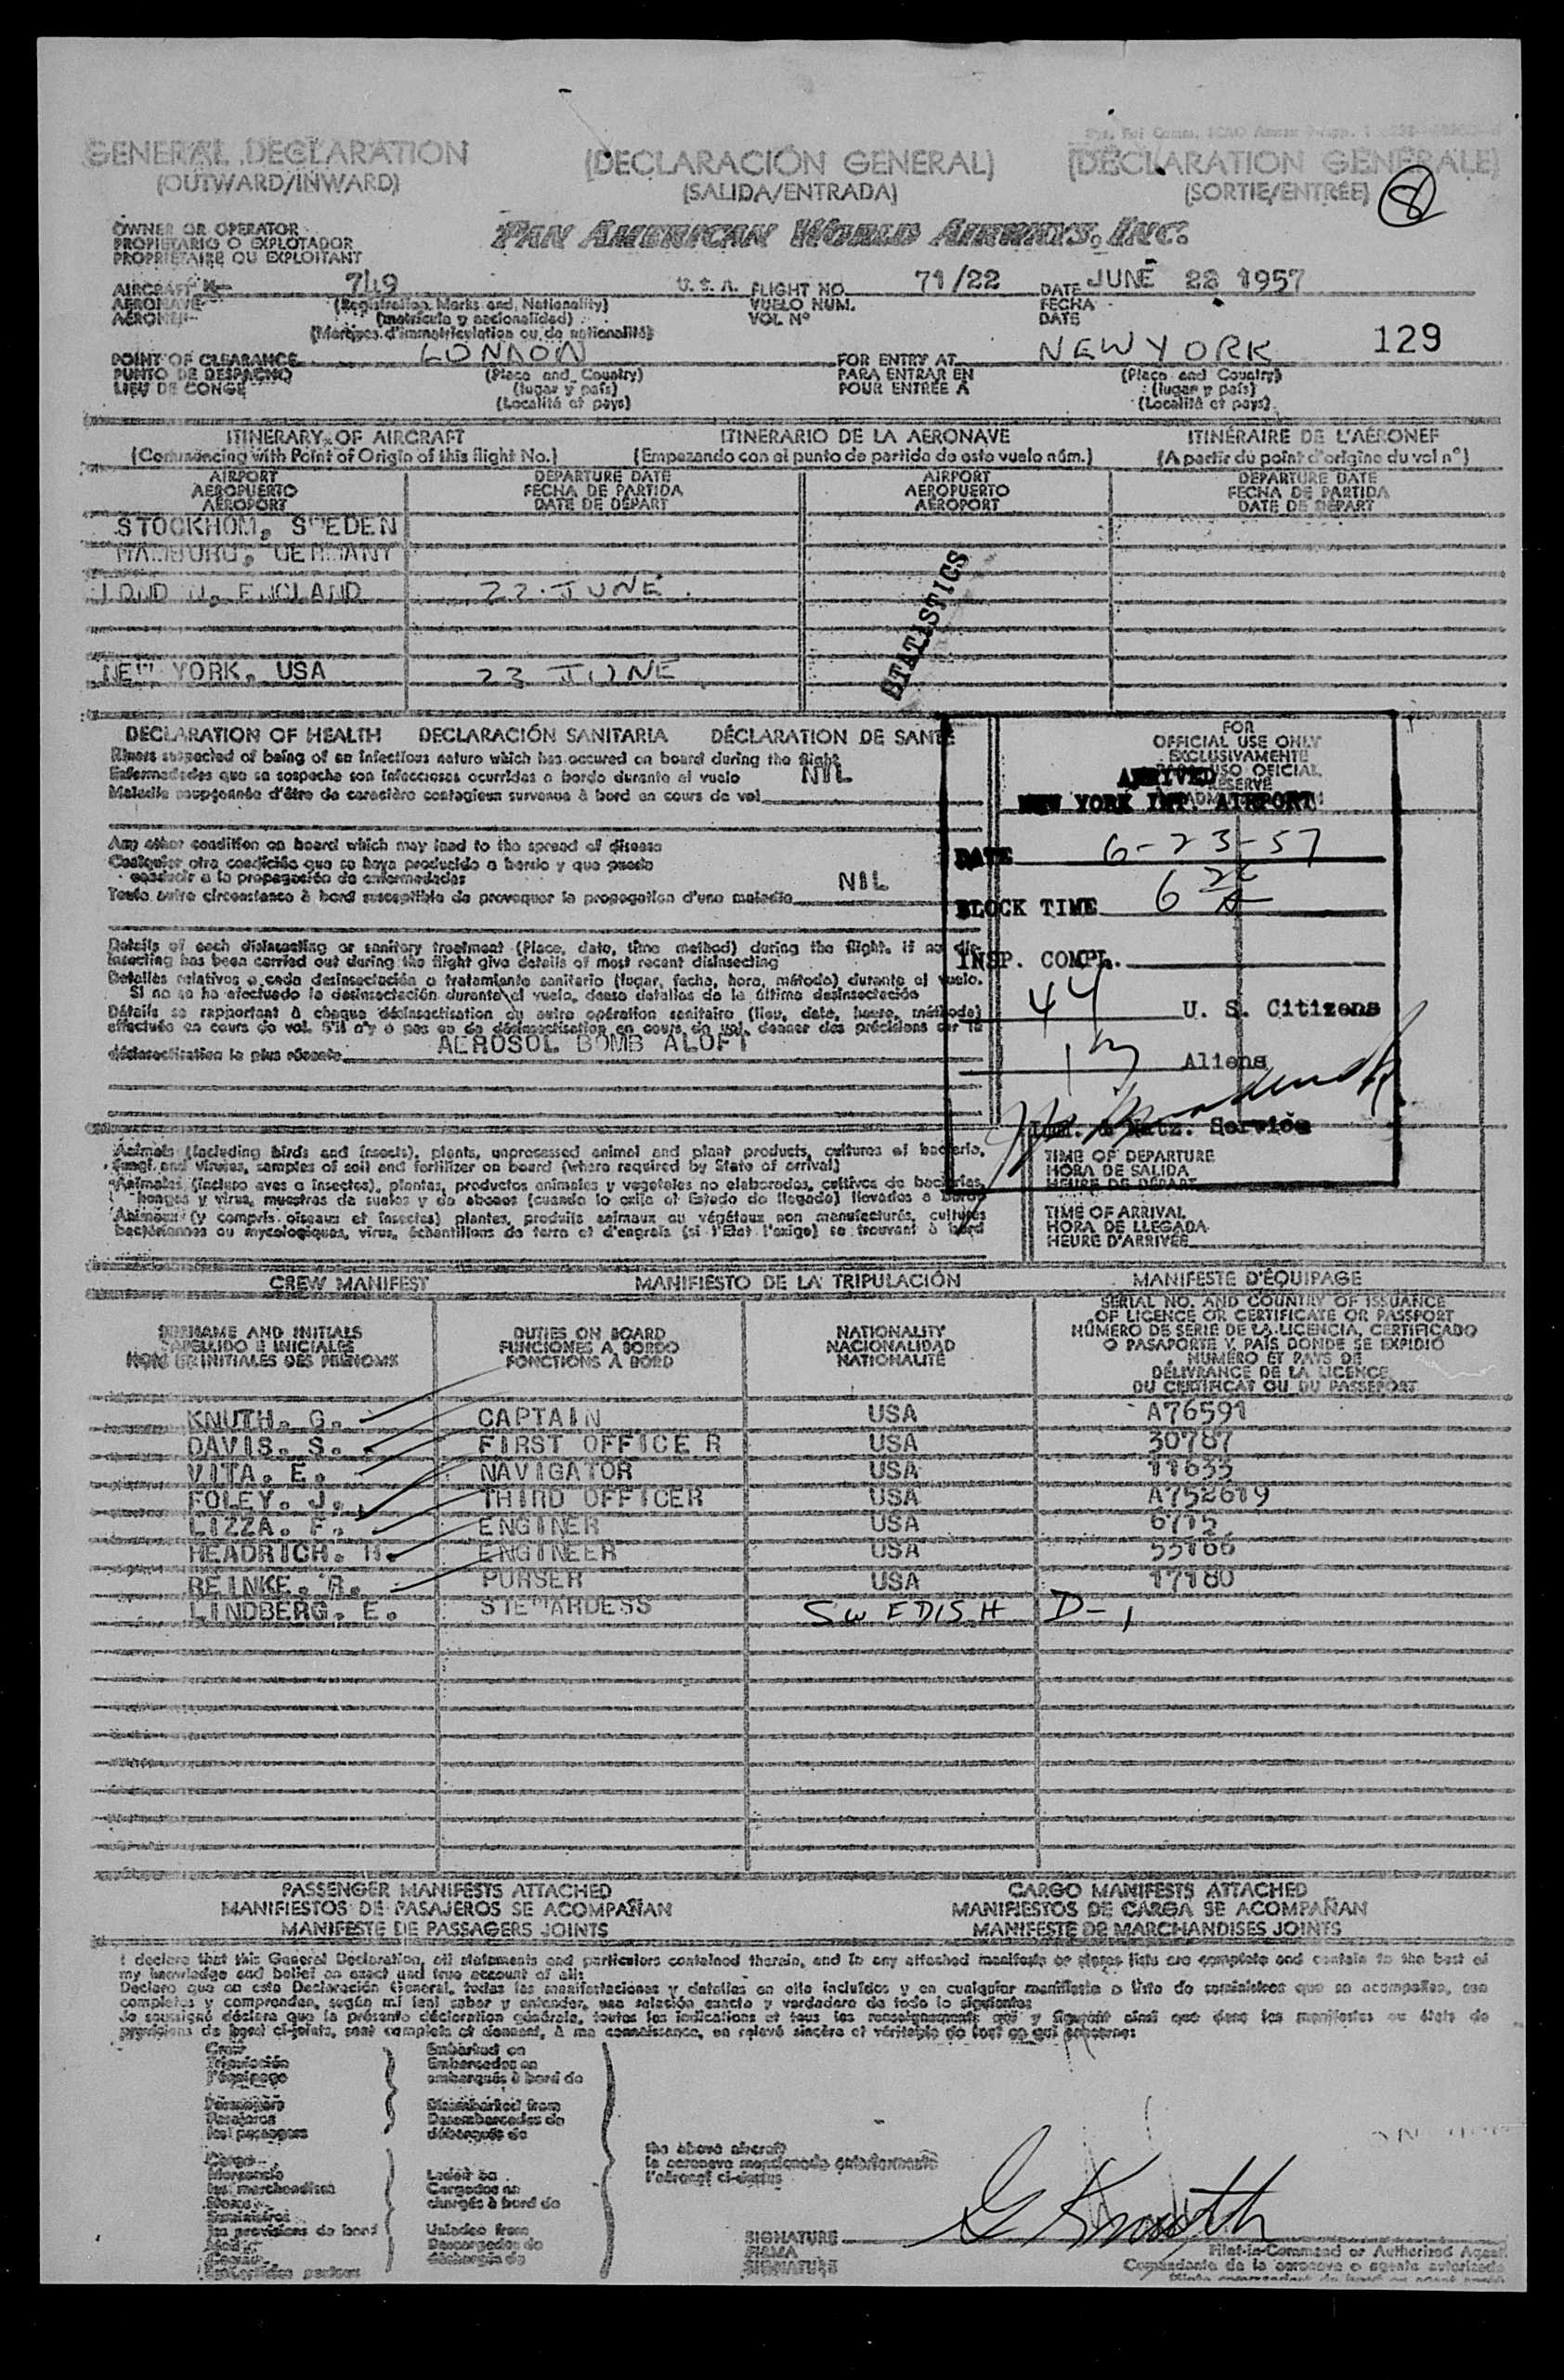 GENERAL DECLARATION
(OUTWARD/INWARD)
(DECLARACIÓN GENERAL)
(SALIDA/ENTRADA)
(DÉCLARATION GÉNÉRALE)
(SORTIE/ENTRÉE)
8
OWNER OR OPERATOR
PROPIETARIO O EXPLOTADOR
PROPRIETAIRE OU EXPLOITANT
PAN AMERICAN WORLD AIRWAYS, INC.
AIRCRAFT N- 749 U. S. A. FLIGHT NO. 71/22 DATE JUNE 22 1957
AERONAVE (Registration Marks and Nationality) VUELO NUM. FECHA
AÉRONEF (matrícula y nacionalidad) VOL Nº DATE
(Marques d'immatriculation ou de nationalité)
129
POINT OF CLEARANCE LONDON FOR ENTRY AT NEW YORK
PUNTO DE DESPACHO (Place and Country) PARA ENTRAR EN (Place and Country)
LIEU DE CONGÉ (lugar y país) POUR ENTRÉE A (lugar y país)
(Localité et pays) (Localité et pays)
ITINERARY OF AIRCRAFT ITINERARIO DE LA AERONAVE ITINÉRAIRE DE L'AÉRONEF
(Commencing with Point of Origin of this flight No.) (Empezando con el punto de partida de este vuelo núm.) (A partir du point d'origine du vol nº)
AIRPORT DEPARTURE DATE AIRPORT DEPARTURE DATE
AEROPUERTO FECHA DE PARTIDA AEROPUERTO FECHA DE PARTIDA
AÉROPORT DATE DE DÉPART AÉROPORT DATE DE DÉPART
STOCKHOM, SWEDEN
HAMBURG, GERMANY
LONDON, ENGLAND 22 JUNE
NEW YORK, USA 23 JUNE
STATISTICS
DECLARATION OF HEALTH DECLARACIÓN SANITARIA DÉCLARATION DE SANTÉ
Illness suspected of being of an infectious nature which has occured on board during the flight
Enfermedades que se sospeche son infecciosas ocurridas a bordo durante el vuelo NIL
Maladie soupçonnée d'être de caractère contagieux survenue à bord en cours de vol
Any other condition on board which may lead to the spread of disease
Cualquier otra condición que se haya producido a bordo y que pueda
conducir a la propagación de enfermedades
Toute autre circonstance à bord susceptible de provoquer la propagation d'une maladie NIL
Details of each disinsecting or sanitary treatment (Place, date, time method) during the flight. If no dis-
insecting has been carried out during the flight give details of most recent disinsecting
Detalles relativos a cada desinsectación o tratamiento sanitario (lugar, fecha, hora, método) durante el vuelo.
Si no se ha efectuado la desinsectación durante el vuelo, dense detalles de la última desinsectación
Détails se rapportant à chaque désinsectisation ou autre opération sanitaire (lieu, date, heure, méthode)
effectuée en cours de vol. S'il n'y a pas eu de désinsectisation en cours de vol, donner des précisions sur la
désinsectisation la plus récente AEROSOL BOMB ALOFT
FOR
OFFICIAL USE ONLY
EXCLUSIVAMENTE
PARA USO OFICIAL
RÉSERVÉ
ARRIVED
NEW YORK INT. AIRPORT
DATE 6-23-57
BLOCK TIME 6
INSP. COMPL.
44 U. S. Citizens
13 Aliens
Imm. & Natz. Service
Animals (including birds and insects), plants, unprocessed animal and plant products, cultures of bacteria,
fungi and viruses, samples of soil and fertilizer on board (where required by State of arrival)
Animales (incluso aves e insectos), plantas, productos animales y vegetales no elaborados, cultivos de bacterias,
hongos y virus, muestras de suelos y de abonos (cuando lo exija el Estado de llegada) llevados a bordo
Animaux (y compris oiseaux et insectes) plantes, produits animaux ou végétaux non manufacturés, cultures
bactériennes ou mycologiques, virus, échantillons de terre et d'engrais (si l'Etat l'exige) se trouvant à bord
TIME OF DEPARTURE
HORA DE SALIDA
HEURE DE DÉPART
TIME OF ARRIVAL
HORA DE LLEGADA
HEURE D'ARRIVÉE
CREW MANIFEST MANIFIESTO DE LA TRIPULACIÓN MANIFESTE D'ÉQUIPAGE
SURNAME AND INITIALS DUTIES ON BOARD NATIONALITY
APELLIDO E INICIALES FUNCIONES A BORDO NACIONALIDAD
NOM ET INITIALES DES PRENOMS FONCTIONS À BORD NATIONALITÉ
SERIAL NO. AND COUNTRY OF ISSUANCE
OF LICENCE OR CERTIFICATE OR PASSPORT
NÚMERO DE SERIE DE LA LICENCIA, CERTIFICADO
O PASAPORTE Y PAÍS DONDE SE EXPIDIÓ
NUMÉRO ET PAYS DE
DÉLIVRANCE DE LA LICENCE
DU CERTIFICAT OU DU PASSEPORT
KNUTH. G. CAPTAIN USA A76591
DAVIS. S. FIRST OFFICE R USA 30787
VITA. E. NAVIGATOR USA 11633
FOLEY. J. THIRD OFFICER USA A752619
LIZZA. F. ENGINER USA 6715
HEADRICH. H. ENGINEER USA 55166
REINKE. R. PURSER USA 17180
LINDBERG. E. STEWARDESS SWEDISH D-1
PASSENGER MANIFESTS ATTACHED CARGO MANIFESTS ATTACHED
MANIFIESTOS DE PASAJEROS SE ACOMPAÑAN MANIFIESTOS DE CARGA SE ACOMPAÑAN
MANIFESTE DE PASSAGERS JOINTS MANIFESTE DE MARCHANDISES JOINTS
I declare that this General Declaration, all statements and particulars contained therein, and in any attached manifests or stores lists are complete and contain to the best of
my knowledge and belief an exact and true account of all:
Declaro que en esta Declaración General, todas las manifestaciones y detalles en ella incluídos y en cualquier manifiesto o lista de suministros que se acompañen, son
completos y comprenden, según mi leal saber y entender, una relación exacta y verdadera de todo lo siguiente:
Je soussigné déclare que la présente déclaration générale, toutes les indications et tous les renseignements qui y figurent ainsi que dans les manifestes ou états de
provisions de bord ci-joints, sont complets et donnent, à ma connaissance, un relevé sincère et véritable de tout ce qui concerne:
Crew Embarked on
Tripulación Embarcados en
l'équipage embarqués à bord de
Passengers Disembarked from
Pasajeros Desembarcados de
les passagers débarqués de
the above aircraft
la aeronave mencionada anteriormente
l'aéronef ci-dessus
Cargo
Mercancía Laden on
les marchandises Cargados en
Stores chargés à bord de
Suministros
les provisions de bord Unladen from
Descargados de
déchargés de
SIGNATURE G Knuth
FIRMA
SIGNATURE
Pilot-in-Command or Authorized Agent
Comandante de la aeronave o agente autorizado